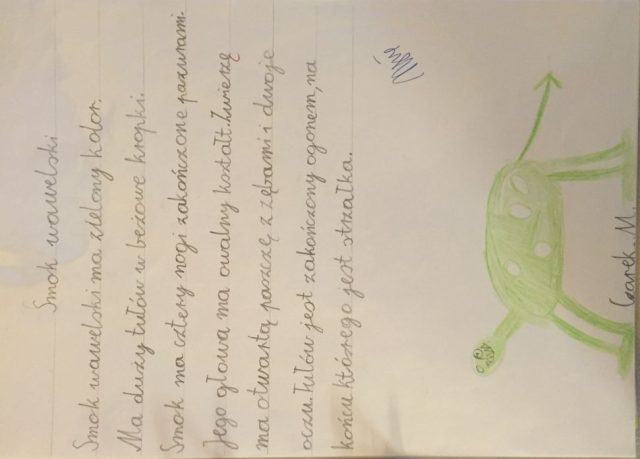 Smok wawelski
Smok wawelski ma zielony kolor.
Ma duży tułów w beżowe kropki.
Smok ma cztery nogi zakończone pazurami.
Jego głowa ma owalny kształt. Zwierzę
ma otwartą paszczę z zębami i dwoje
oczu. Tułów jest zakończony ogonem, na
końcu którego jest strzałka.
Czarek M.